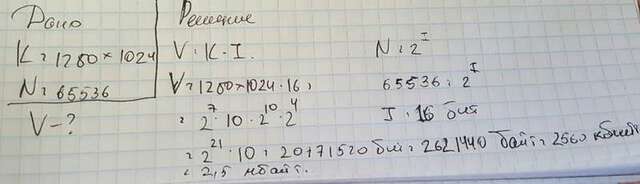 Дано
K = 1280 × 1024
N = 65536
V - ?
Решение
V = K · I.
V = 1280 × 1024 · 16 =
= 2^7 · 10 · 2^10 · 2^4
= 2^21 · 10 = 20971520 бит = 2621440 байт = 2560 кбайт
= 2,5 мбайт.
N = 2^I
65536 = 2^I
I = 16 бит